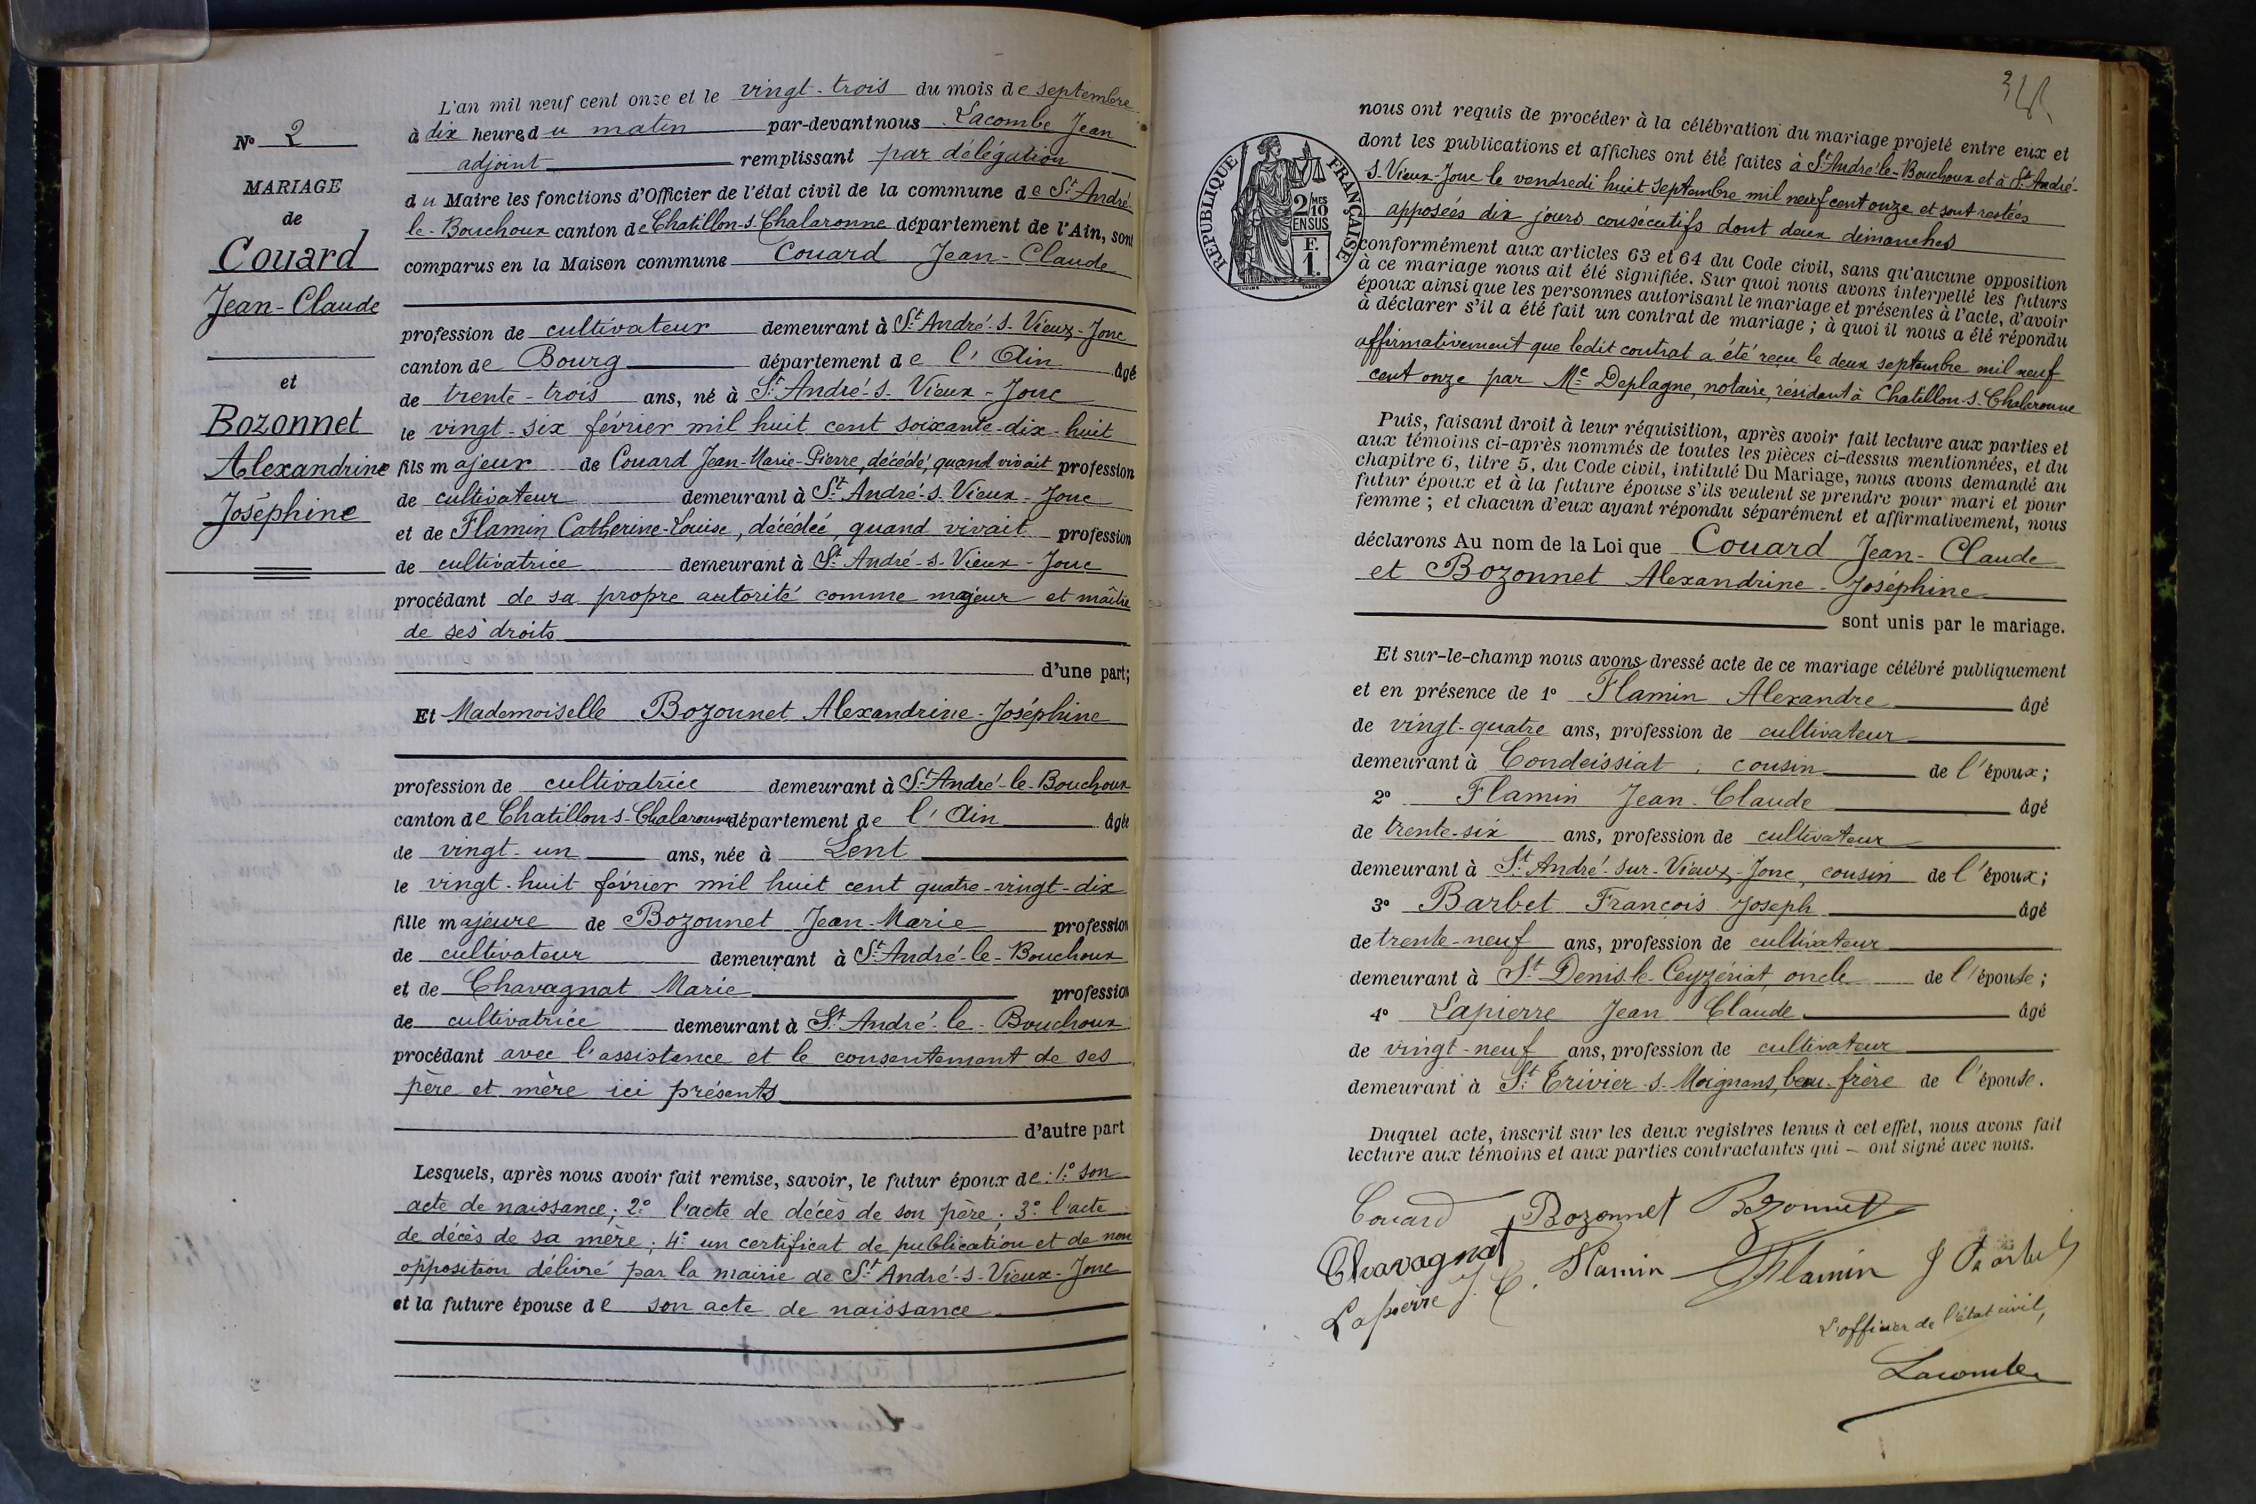 N° 2
MARIAGE
de
Couard
Jean-Claude
et
Bozonnet
Alexandrine
Joséphine
L'an mil neuf cent onze et le vingt-trois du mois de septembre
à dix heures du matin par-devant nous Lacombe Jean
adjoint remplissant par délégation
du Maire les fonctions d'Officier de l'état civil de la commune de St André-
le-Bouchoux canton de Chatillon-s-Chalaronne département de l'Ain, sont
comparus en la Maison commune Couard Jean-Claude
profession de cultivateur demeurant à St André-s-Vieux-Jonc
canton de Bourg département de l'Ain âgé
de trente-trois ans, né à St André-s-Vieux-Jonc
le vingt-six février mil huit cent soixante-dix-huit
fils majeur de Couard Jean-Marie-Pierre, décédé, quand vivait profession
de cultivateur demeurant à St André-s-Vieux-Jonc
et de Flamin Catherine-Louise, décédée, quand vivait profession
de cultivatrice demeurant à St André-s-Vieux-Jonc
procédant de sa propre autorité comme majeur et maître
de ses droits
d'une part;
Et Mademoiselle Bozonnet Alexandrine-Joséphine
profession de cultivatrice demeurant à St André-le-Bouchoux
canton de Chatillon-s-Chalaronne département de l'Ain âgée
de vingt-un ans, née à Lent
le vingt-huit février mil huit cent quatre-vingt-dix
fille majeure de Bozonnet Jean-Marie profession
de cultivateur demeurant à St André-le-Bouchoux
et de Chavagnat Marie profession
de cultivatrice demeurant à St André-le-Bouchoux
procédant avec l'assistance et le consentement de ses
père et mère ici présents
d'autre part
Lesquels, après nous avoir fait remise, savoir, le futur époux de: 1° son
acte de naissance; 2° l'acte de décès de son père; 3° l'acte
de décès de sa mère; 4° un certificat de publication et de non
opposition délivré par la mairie de St André-s-Vieux-Jonc
et la future épouse de son acte de naissance
RÉPUBLIQUE FRANÇAISE
2/10 MES
EN SUS
F.
1.
nous ont requis de procéder à la célébration du mariage projeté entre eux et
dont les publications et affiches ont été faites à St André-le-Bouchoux et à St André-
s-Vieux-Jonc le vendredi huit septembre mil neuf cent onze et sont restées
apposées dix jours consécutifs dont deux dimanches
conformément aux articles 63 et 64 du Code civil, sans qu'aucune opposition
à ce mariage nous ait été signifiée. Sur quoi nous avons interpellé les futurs
époux ainsi que les personnes autorisant le mariage et présentes à l'acte, d'avoir
à déclarer s'il a été fait un contrat de mariage; à quoi il nous a été répondu
affirmativement que ledit contrat a été reçu le deux septembre mil neuf
cent onze par Me Deplagne, notaire, résidant à Chatillon-s-Chalaronne
Puis, faisant droit à leur réquisition, après avoir fait lecture aux parties et
aux témoins ci-après nommés de toutes les pièces ci-dessus mentionnées, et du
chapitre 6, titre 5, du Code civil, intitulé Du Mariage, nous avons demandé au
futur époux et à la future épouse s'ils veulent se prendre pour mari et pour
femme; et chacun d'eux ayant répondu séparément et affirmativement, nous
déclarons Au nom de la Loi que Couard Jean-Claude
et Bozonnet Alexandrine-Joséphine
sont unis par le mariage.
Et sur-le-champ nous avons dressé acte de ce mariage célébré publiquement
et en présence de 1° Flamin Alexandre âgé
de vingt-quatre ans, profession de cultivateur
demeurant à Condeissiat, cousin de l'époux;
2° Flamin Jean-Claude âgé
de trente-six ans, profession de cultivateur
demeurant à St André-sur-Vieux-Jonc, cousin de l'époux;
3° Barbet François Joseph âgé
de trente-neuf ans, profession de cultivateur
demeurant à St Denis-le-Ceyzériat, oncle de l'épouse;
4° Lapierre Jean Claude âgé
de vingt-neuf ans, profession de cultivateur
demeurant à St Trivier-s-Moignans, beau-frère de l'épouse.
Duquel acte, inscrit sur les deux registres tenus à cet effet, nous avons fait
lecture aux témoins et aux parties contractantes qui – ont signé avec nous.
Couard Bozonnet Bozonnet
Chavagnat J. C. Flamin Flamin
Lapierre
L'officier de l'état civil,
Lacombe